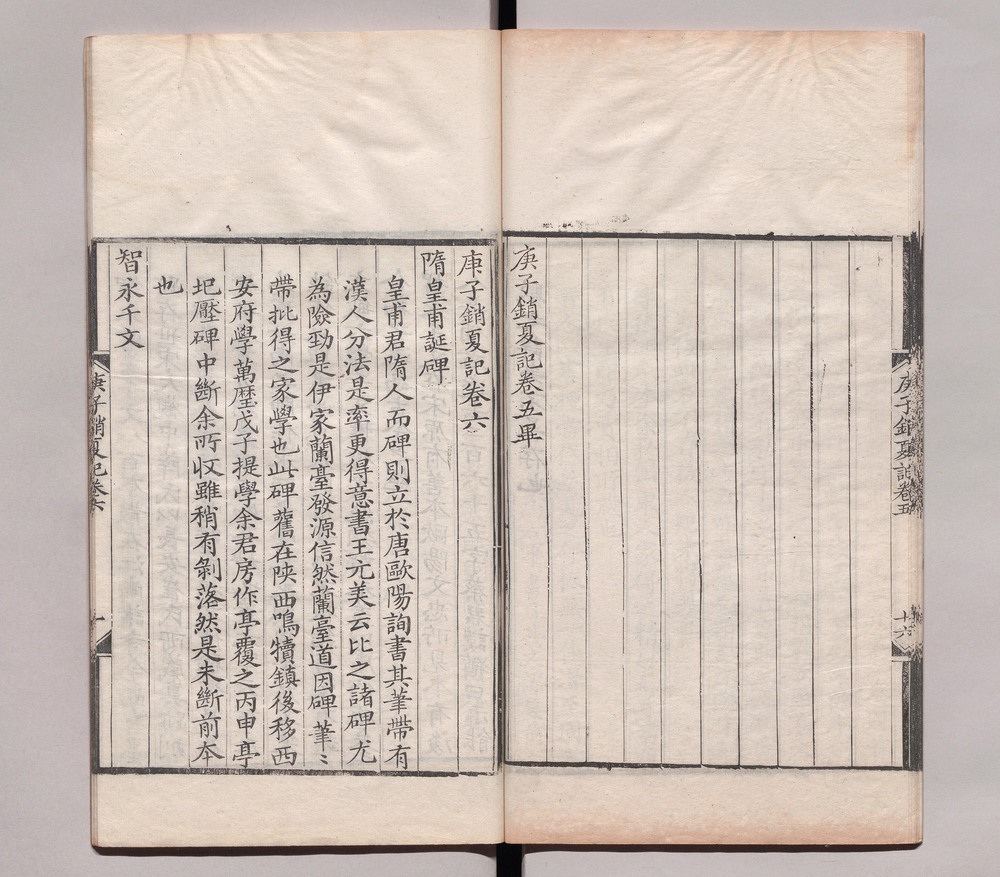 庚子銷夏記卷五
十六
庚子銷夏記卷五畢
庚子銷夏記卷六
隋皇甫誕碑
皇甫君隋人而碑則立於唐歐陽詢書其筆帶有
漢人分法是率更得意書王元美云比之諸碑尤
為險勁是伊家蘭臺發源信然蘭臺道因碑筆〻
帶批得之家學也此碑舊在陝西鳴犢鎮後移西
安府學萬歷戊子提學余君房作亭覆之丙申亭
圯壓碑中斷余所收雖稍有剝落然是未斷前本
也
智永千文
庚子銷夏記卷六
一